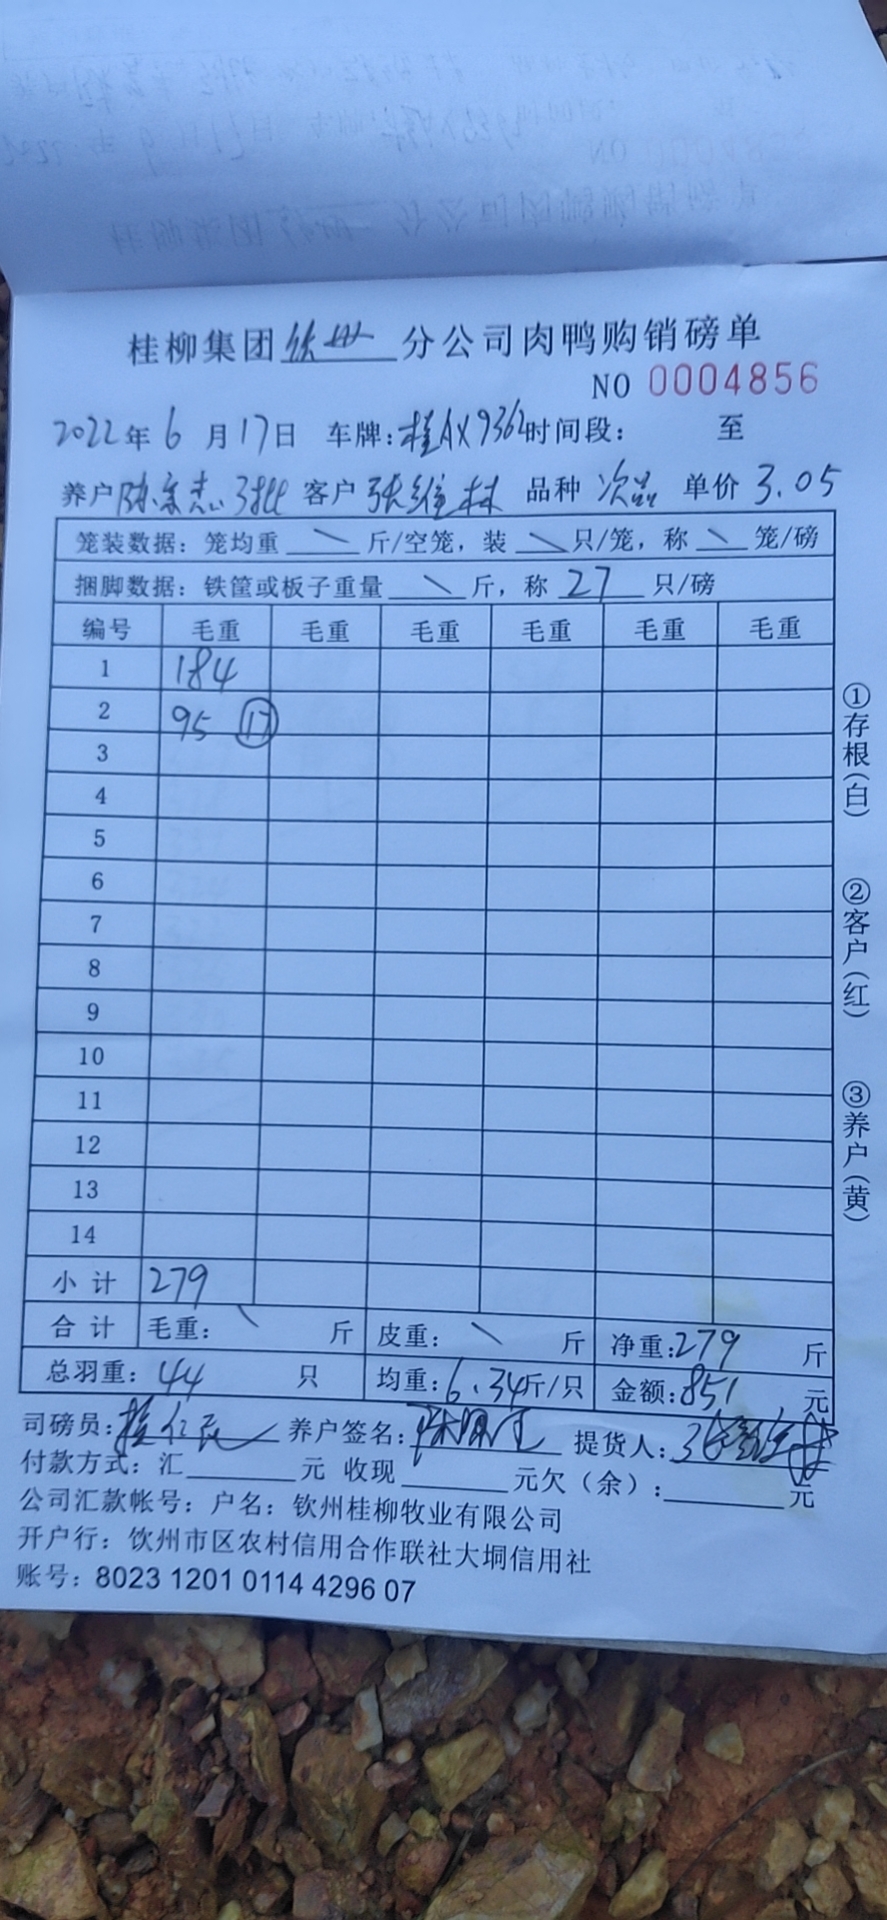 桂柳集团钦州分公司肉鸭购销磅单
NO 0004856
2022年6月17日 车牌:桂AX9362时间段: 至
养户陈宗志3批 客户张维林 品种 次品 单价3.05
笼装数据: 笼均重 \ 斤/空笼, 装 \ 只/笼, 称 \ 笼/磅
捆脚数据: 铁筐或板子重量 \ 斤, 称 27 只/磅
编号 毛重 毛重 毛重 毛重 毛重 毛重
1 184
2 95 17
3
4
5
6
7
8
9
10
11
12
13
14
小计 279
合计 毛重: \ 斤 皮重: \ 斤 净重:279 斤
总羽重: 44 只 均重:6.34斤/只 金额:851 元
司磅员: 养户签名: 提货人:
付款方式: 汇 元 收现 元欠(余): 元
公司汇款帐号: 户名: 钦州桂柳牧业有限公司
开户行: 饮州市区农村信用合作联社大垌信用社
账号: 8023 1201 0114 4296 07
①存根(白)
②客户(红)
③养户(黄)